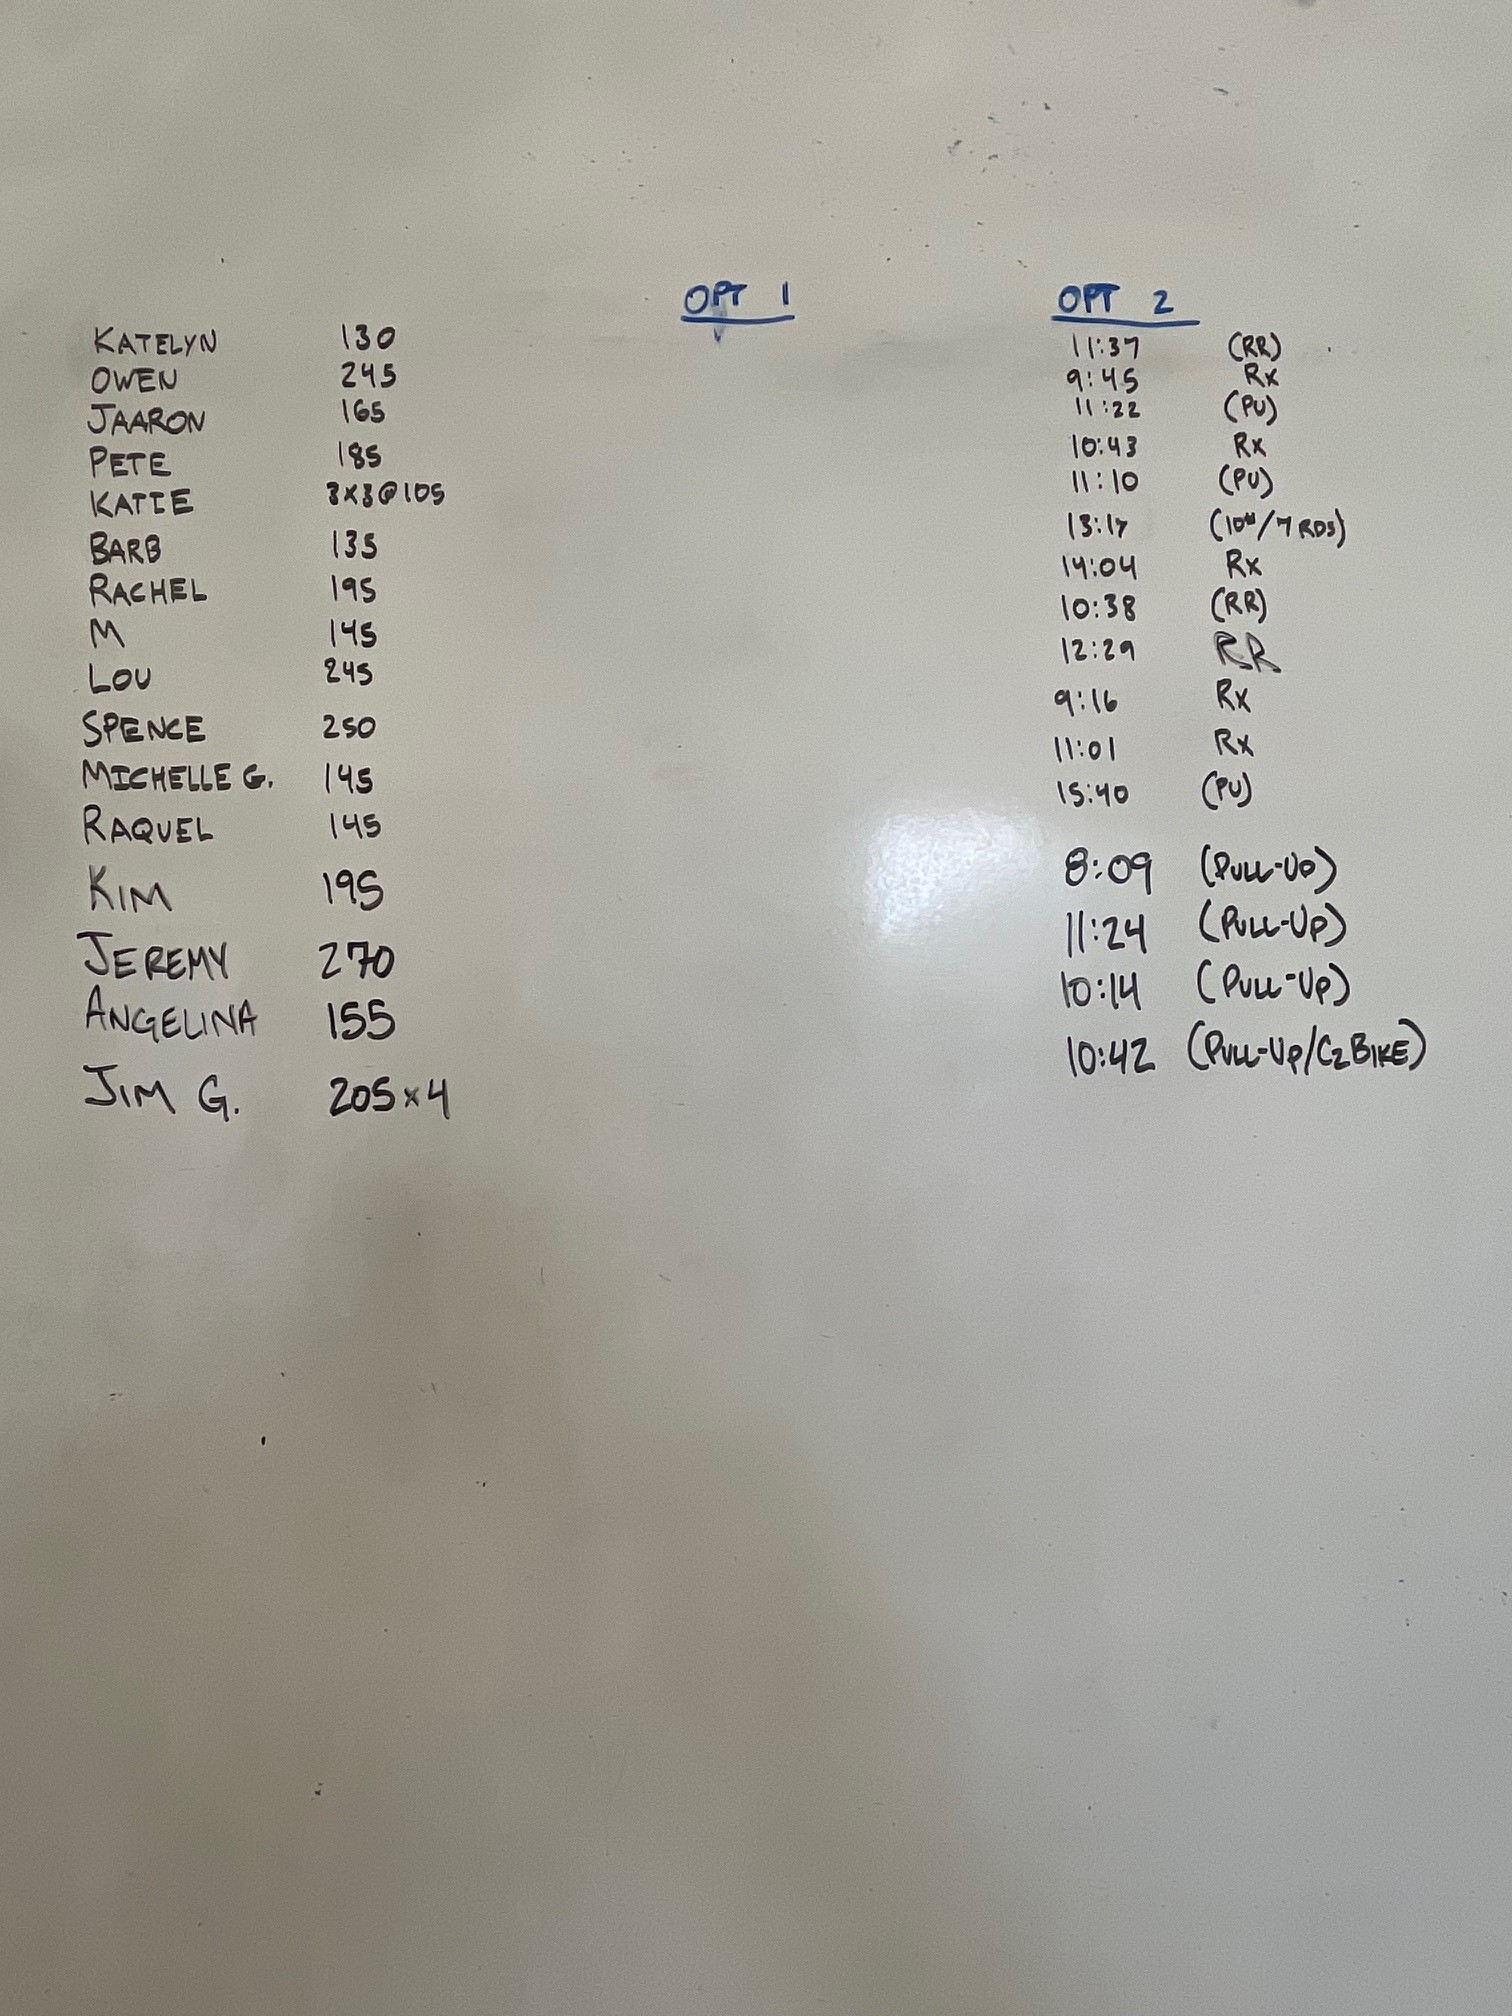 OPT 1 OPT 2
KATELYN 130 11:37 (RR)
OWEN 245 9:45 Rx
JAARON 165 11:22 (PU)
PETE 185 10:43 Rx
KATIE 3x3@105 11:10 (PU)
BARB 135 13:17 (10#/7 RDS)
RACHEL 195 14:04 Rx
M 145 10:38 (RR)
LOU 245 12:29 RR
SPENCE 250 9:16 Rx
MICHELLE G. 145 11:01 Rx
RAQUEL 145 15:40 (PU)
KIM 195 8:09 (PULL-UP)
JEREMY 270 11:24 (PULL-UP)
ANGELINA 155 10:14 (PULL-UP)
JIM G. 205x4 10:42 (PULL-UP/C2 BIKE)